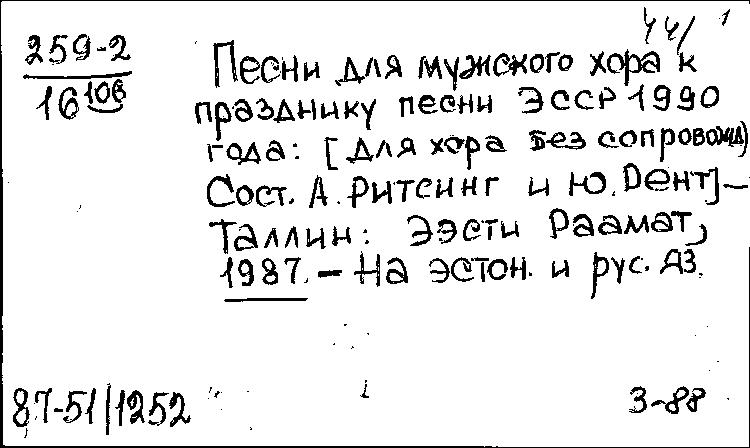 44/ 1
259-2
16 106
Песни для мужского хора к
празднику песни ЭССР 1990
года: [для хора без сопровожд)
Сост. А. Ритсинг и Ю. Вент] –
Таллин: Ээсти Раамат,
1987. – На эстон. и рус. яз.
87-51/1252
3-88